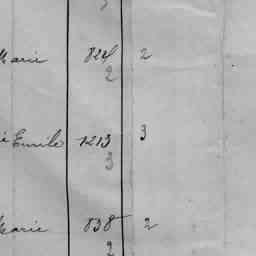 Marie 824 2
2
Emile 1213 3
3
Marie 838 2
2